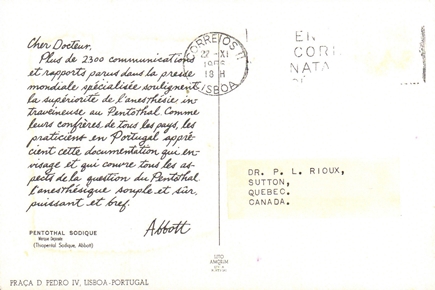 Cher Docteur,
Plus de 2300 communications
et rapports parus dans la presse
mondiale spécialisée soulignent
la supériorité de l'anesthésie in-
traveineuse au Penthotal. Comme
leurs confrères de tous les pays, les
praticiens en Portugal appré-
cient cette documentation qui en-
visage et qui couvre tous les as-
pects de la question du Penthotal
l'anesthésique souple et sûr,
puissant et bref.
Abbott
PENTOTHAL SODIQUE
(Thiopental Sodique, Abbott)
PRAÇA D. PEDRO IV, LISBOA-PORTUGAL
CORREIOS
22 -XI
18 H
LISBOA
DR. P. L. RIOUX,
SUTTON,
QUEBEC.
CANADA.
LITO